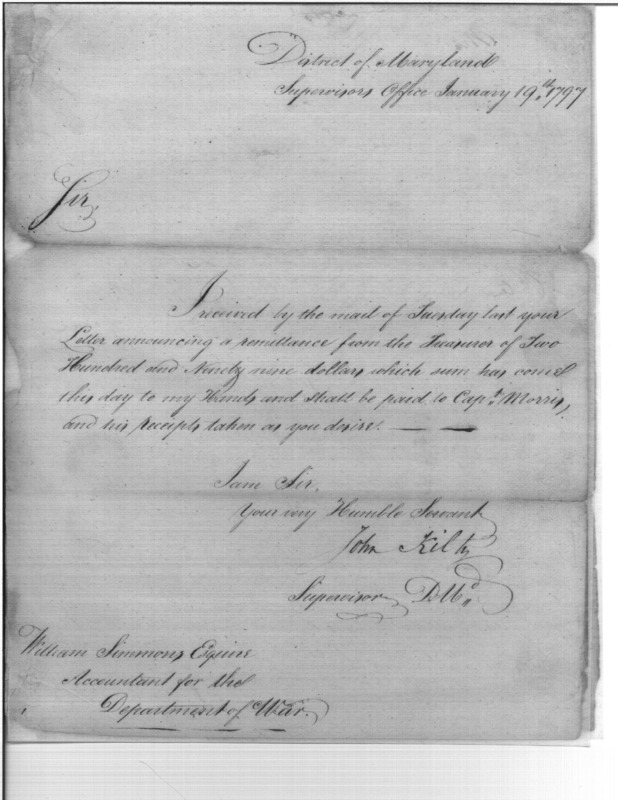 District of Maryland
Supervisors Office January 19th, 1797
Sir,
I received by the mail of Tuesday last your
Letter announcing a remittance from the Treasurer of Two
Hundred and Ninety nine dollars which sum has come
this day to my Hands and shall be paid to Capt. Morris,
and his receipts taken as you desire. — —
I am Sir,
Your very Humble Servant
John Kilty
Supervisor D. Md.
William Simmons Esquire
Accountant for the
Department of War.